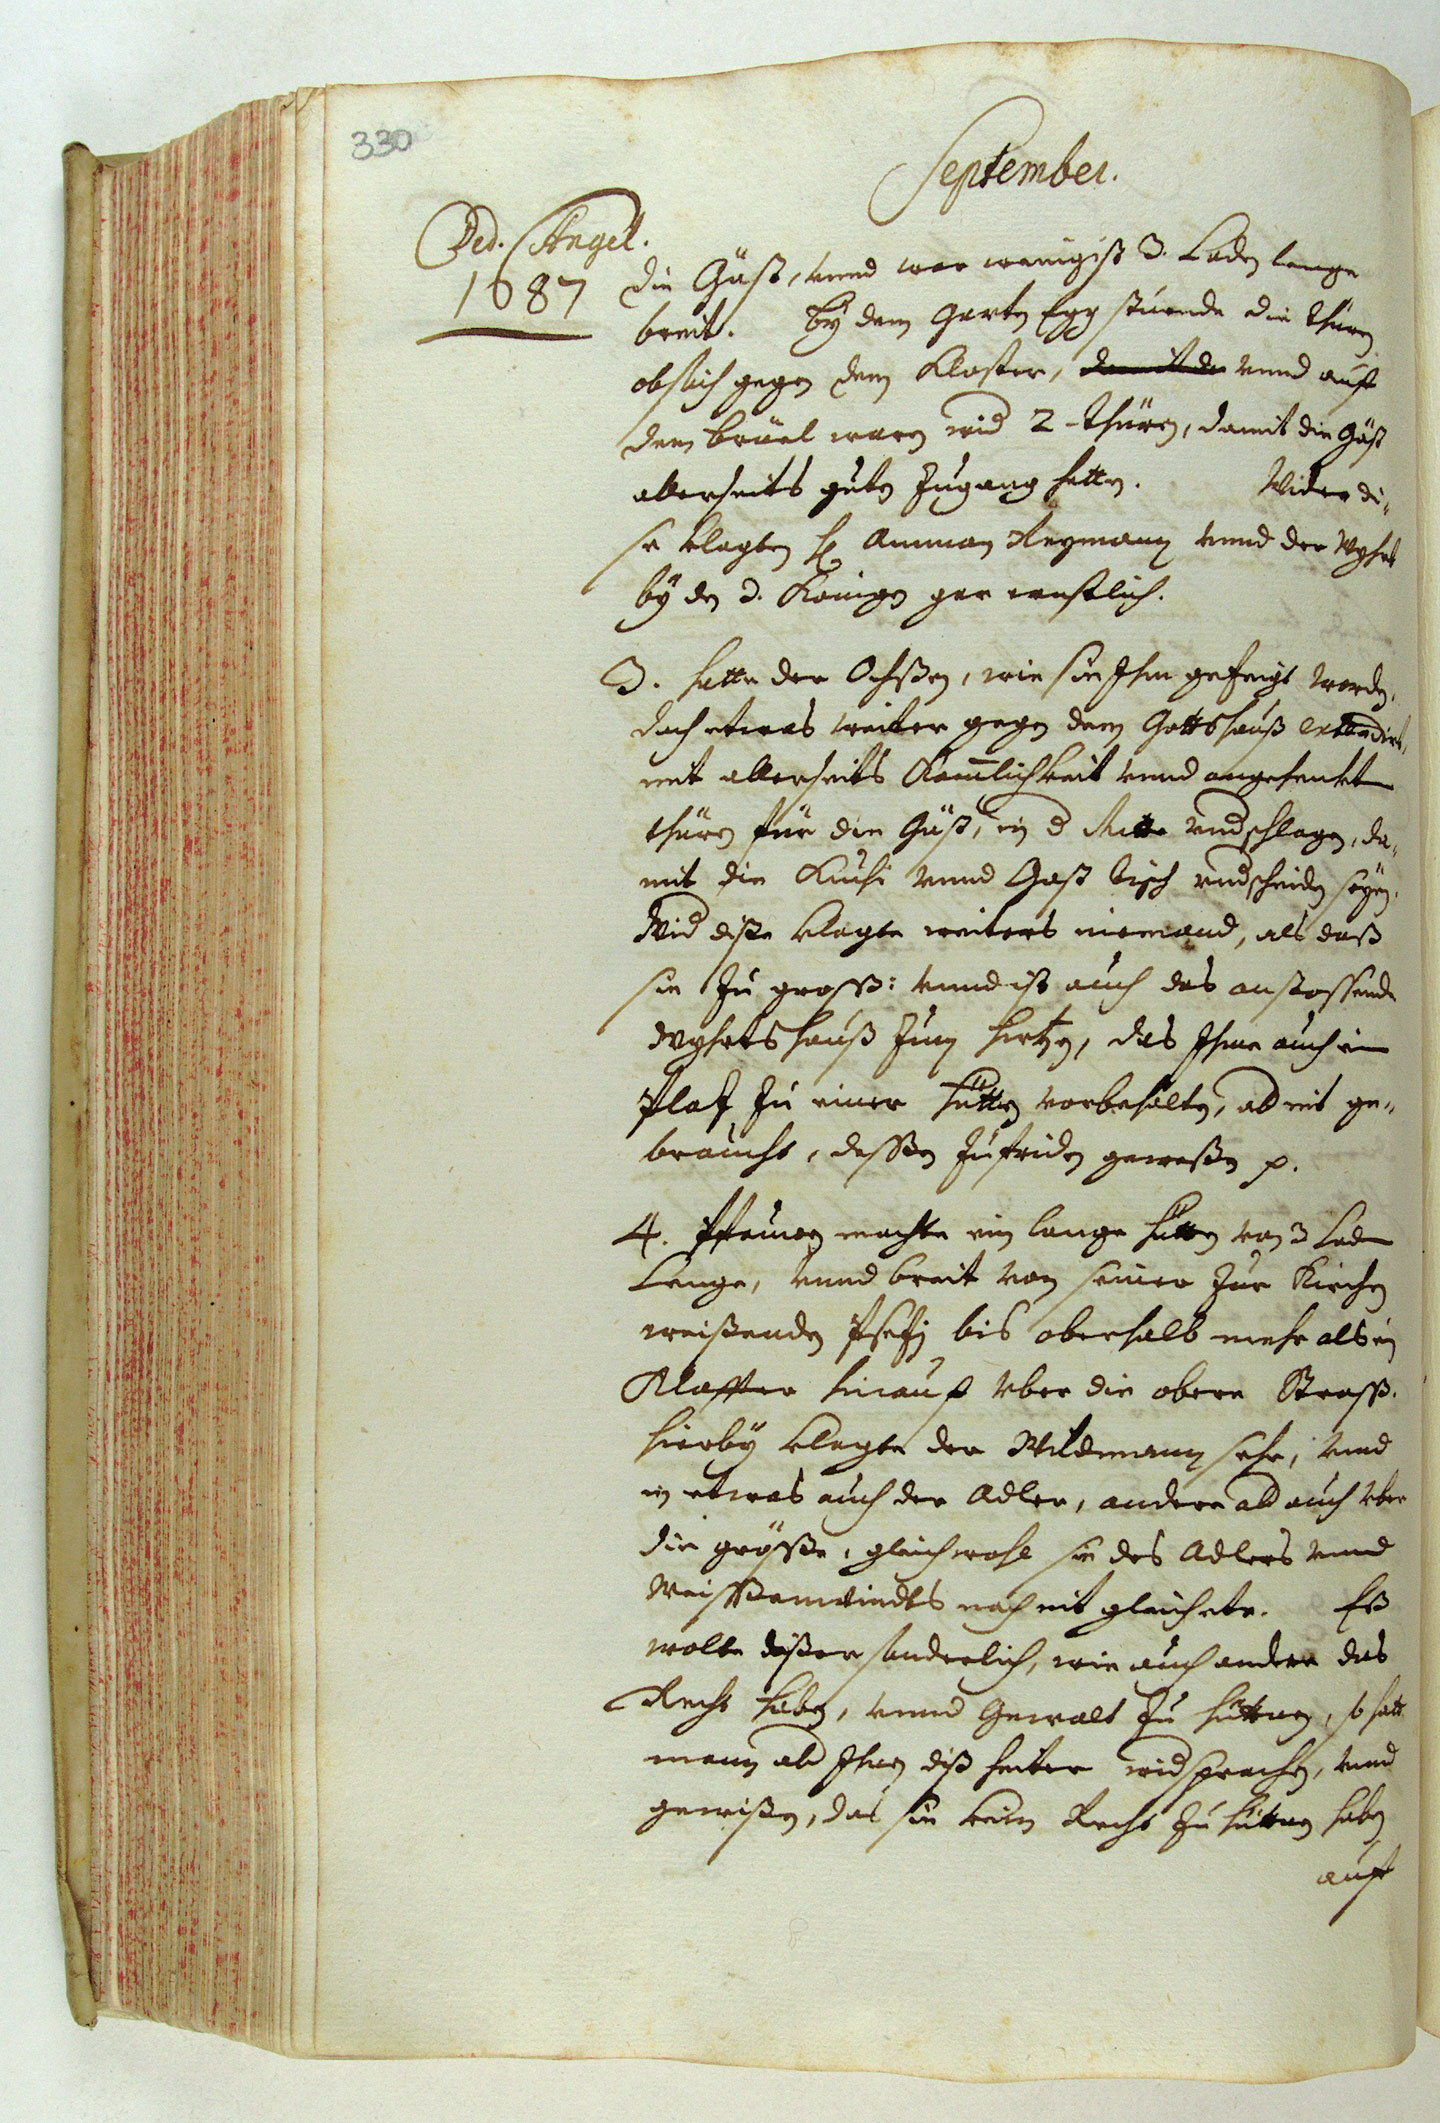 330
September.
Ded. Angel.
1687
die Gäst, vnnd war wenigist 3. Laden lenge
breit. By dem Garten Egg stuende die thüren
obsich gegen dem Kloster, damit der vnnd auff
dem Brüel waren wid 2 thüren, damit die Gäst
allerseits guten Zugang hetten. Wider di-
se klagten H. Amman Reymann vnnd der Wyhrt
by den 3. Königen gar ernstlich.
3. hatte der Ochßen, wie sie Ihm gezeigt worden,
doch etwas weiter gegen dem Gottshauß extendirt,
mit allerseits Komlichkeit vnnd angehenkt
thüren für die Gäst, in d Mitte vndschlagen, da-
mit die Kuchi vnnd Gast tisch vndscheiden seyen.
Wid diße klagte weiters niemand, als daß
sie zu groß: vnnd ist auch das anstossende
Wyhrtshauß zum Hirtzen, das Ihme auch ein
Platz zu einer Hütten vorbehalten, ab nit ge-
braucht, dessen zufriden gewesen p.
4. Pfauwen machte ein lange Hütten von 3 Laden
Lenge, vnnd breit von seiner zur Kirchen
weisenden bis oberhalb mehr als ein
Klaffter hinauff vber die obere Straß.
Hierby klagte der Wildemann sehr, vnnd
in etwas auch der Adler, andere ab auch vber
die größe, gleichwohl sie des Adlers vnnd
Weissenwindts noch nit gleichete. Eß
wolte dißer sonderlich, wie auch andere das
Recht haben, vnnd Gewalt zu hütten, so hatt
mann ab Ihnen diß heiter widsprochen, vnnd
gewißen, das sie kein Recht zu hütten haben
auff